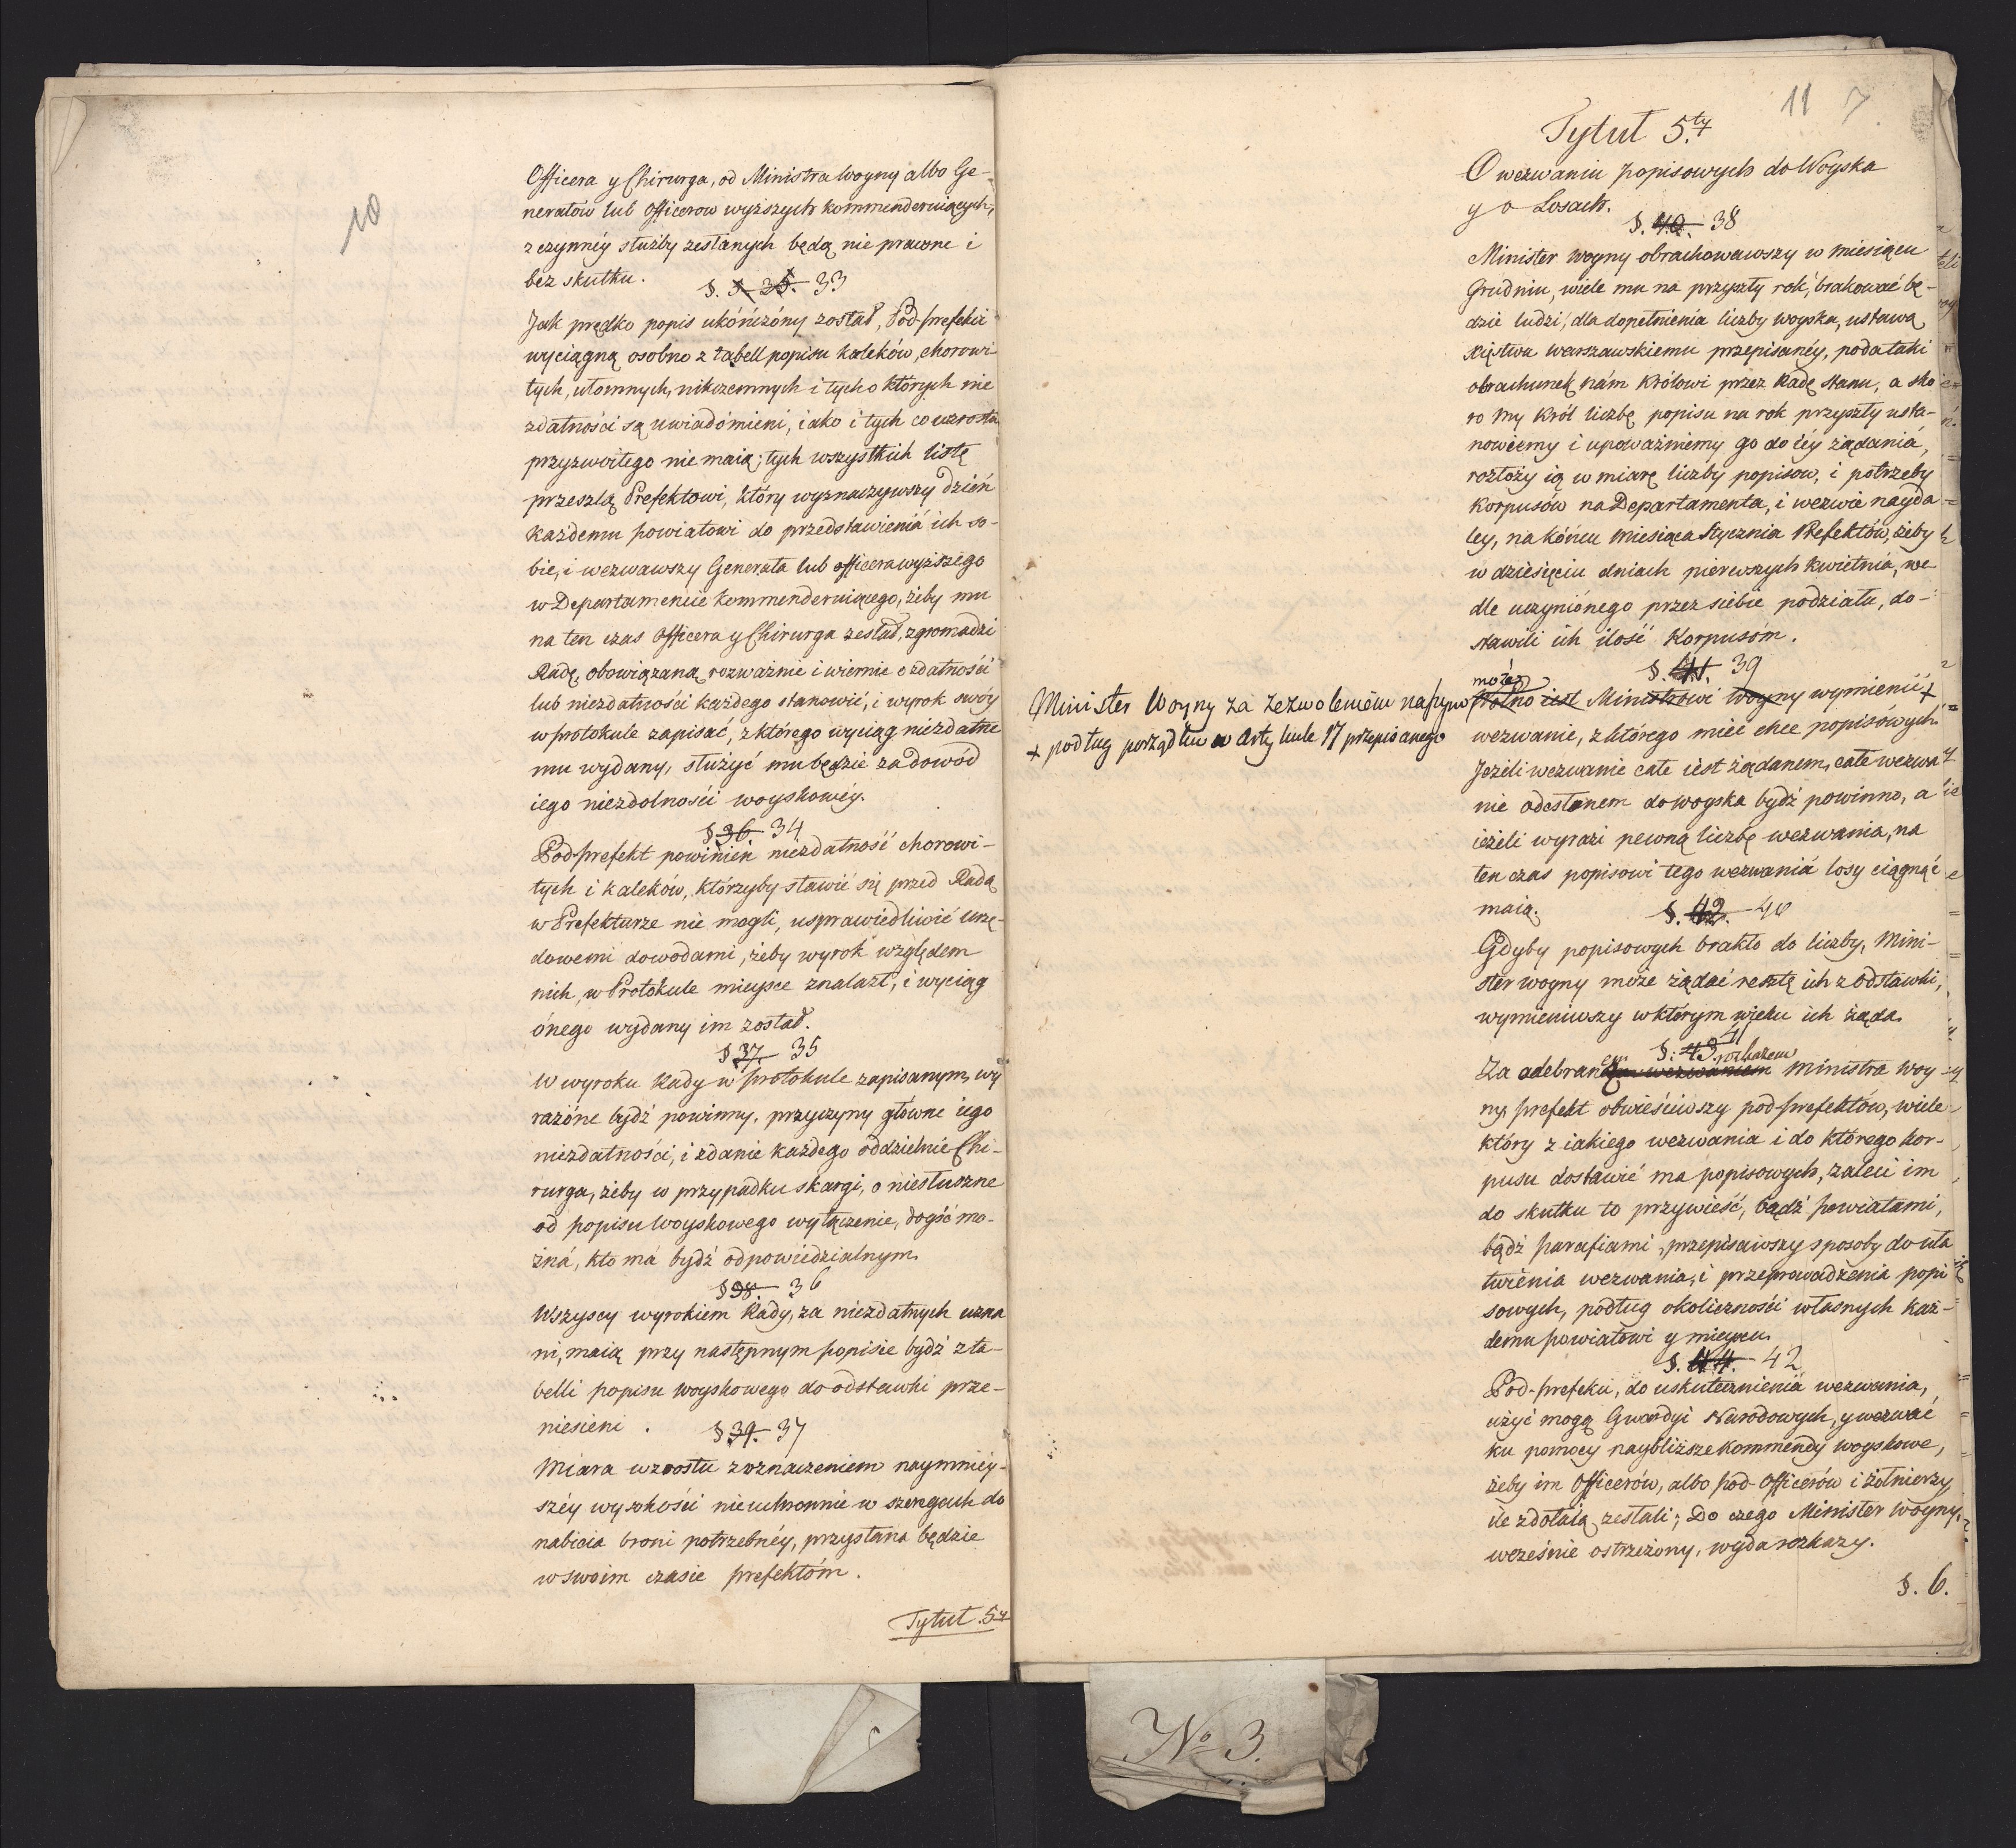 10
Officera y Chirurga, od Ministra Woyny albo Ge-
nerałów lub Officerow wyższych kommenderuiących,
z czynnéy służby zesłanych będą nie prawne i
bez skutku.
§. 35. 33
Jak prędko popis ukończóny został, Pod-prefekci
wyciągną osobno z tabell popisu kaleków, chorowi
tych, ułomnych, nikczemnych i tych o których nie
zdatności są uwiadómieni, iako i tych co wzrostu
przyzwoitego nie maią; tych wszystkich listę
prześlą Prefektowi, który wyznaczywszy dzień
każdemu powiatowi do przedstawieniá ich so-
bie, i wezwawszy Generała lub officera wyższego
w Departamencie kommenderuiącego, żeby mu
na ten czas officera y Chirurga zesłał, zgromadzi
Radę, obowiązaną rozważnie i wiernie o zdatności
lub niezdatności każdego stanowić, i wyrok swóy
w protokule zapisać, z którego wyciąg niezdatne
mu wydany, służyć mu będzie za dowód
iego niezdolności woyskowéy.
§ 36. 34
Pod-prefekt powinien niezdatność chorowi-
tych i kaleków, którzyby stawić się przed Radą
w Prefekturze nie mogli, usprawiedliwić urzę-
dowemi dowodami, żeby wyrok względem
nich, w Protokule mieysce znalazł, i wyciąg
ónego wydany im został.
§ 37. 35
W wyroku Rady w protokule zapisanym, wy
rażóne bydź powinny, przyczyny główne iego
niezdatności, i zdanie każdego oddzielnie Chi-
rurga, żeby w przypadku skargi, o niesłuszne
od popisu woyskowego wyłączenie, doyść mo-
żná, kto má bydź odpowiedzialnym.
§ 38. 36
Wszyscy wyrokiem Rady, za niezdatnych uzna
ni, maią przy następnym popisie bydź z ta-
belli popisu woyskowego do odstawki prze-
niesieni.
§ 39. 37
Miara wzrostu z oznaczeniem naymniéy-
széy wysokości nieuchronnie w szeregach do
nabicia broni potrzebnéy, przysłana będzie
w swoim czasie prefektóm.
Tytuł 5ty
11 7
Tytuł 5.ty
O wezwaniu popisowych do Woyska
y o Losach.
§. 40. 38
Minister Woyny obrachowawszy w miesiącu
Grudniu, wiele mu na przyszły rok, brakować bę-
dzie ludzi, dla dopełnienia liczby woyska, ustawą
Xięstwu warszawskiemu przepisanéy, poda taki
obrachunek nám Królowi przez Radę stanu, a sko
ro My Król liczbę popisu na rok przyszły usta-
nowiemy i upoważniemy go do iéy żądaniá,
rozłoży ią w miarę liczby popisow, i potrzeby
korpusów na Departamenta, i wezwie nayda-
ley, na kóńcu Miesiąca Stycznia Prefektów, żeby
w dziesięciu dniach pierwszych kwietniá, we
dle uczyniónego przez siebie podziału, do-
stawili ich ilość Korpusóm.
§. 41. 39
Minister Woyny za zezwoleniem naszym może
Wolno iest Ministrowi Woyny wymienić +
+ podług porządku w Artykule 17 przepisanego
wezwanie, z którego mieć chce popisówych
Jeżeli wezwanie całe iest żądanem, całe wezwa
nie odesłanem do woyska bydź powinno, a
ieżeli wyrazi pewną liczbę wezwania, na
ten czas popisowi tego wezwaniá losy ciągnąć
maią.
§. 42. 40
Gdyby popisowych brakło do liczby, Mini-
ster woyny może żądać resztę ich z odstawki,
wymieniwszy w którym wieku ich żąda.
§. 43. 41
Za odebranem rozkazem wezwaniem Ministra Woy-
ny, prefekt obwieściwszy pod-prefektów, wiele
który z iakiego wezwania i do którego kor-
pusu dostawić ma popisowych, zaleci im
do skutku to przywieść, bądź powiatami,
bądź parafiami, przepisawszy sposoby do uła
twienia wezwania, i przeprowadzenia popi
sowych, podług okoliczności własnych każ-
demu powiatowi y mieyscu.
§. 44. 42
Pod-prefekci, do uskutecznieniá wezwania,
użyć mogą Gwardyi Narodowych, y wezwać
ku pomocy naybliższe kommendy woyskowe,
żeby im Officerów, albo pod-officerów i żołnierzy,
ile zdołaią, zesłali; Do czego Minister Woyny,
wcześnie ostrzeżony, wyda rozkazy.
§. 6.
No 3.